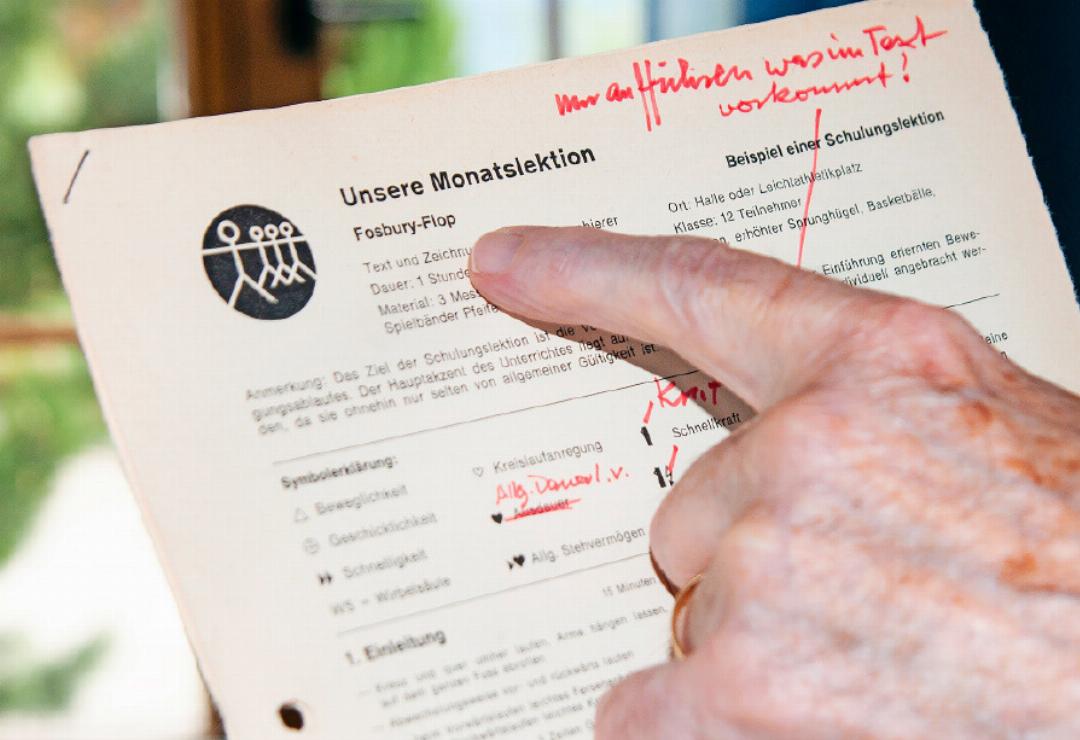 nur anführen was im Text
vorkommt!
Unsere Monatslektion
Fosbury-Flop
Text und Zeichnu
hierer
Dauer: 1 Stunde
Material: 3 Mess
Spielbänder Pfeife
Beispiel einer Schulungslektion
Ort: Halle oder Leichtathletikplatz
Klasse: 12 Teilnehmer
erhöhter Sprunghügel, Basketbälle,
Einführung erlernten Bewe-
dividuell angebracht wer-
Anmerkung: Das Ziel der Schulungslektion ist die
gungsablaufes. Der Hauptakzent des Unterrichtes liegt auf
den, da sie ohnehin nur selten von allgemeiner Gültigkeit ist.
eine
Symbolerklärung:
△ Beweglichkeit
Geschicklichkeit
Schnelligkeit
WS = Wirbelsäule
♡ Kreislaufanregung
Allg. Dauerl. v.
♥ Ausdauer
Allg. Stehvermögen
Kraft
Schnellkraft
15 Minuten
1. Einleitung
— Kreuz und quer umher laufen, Arme hängen lassen,
auf dem ganzen Fuss abrollen.
— Abwechslungsweise vor- und rückwärts laufen